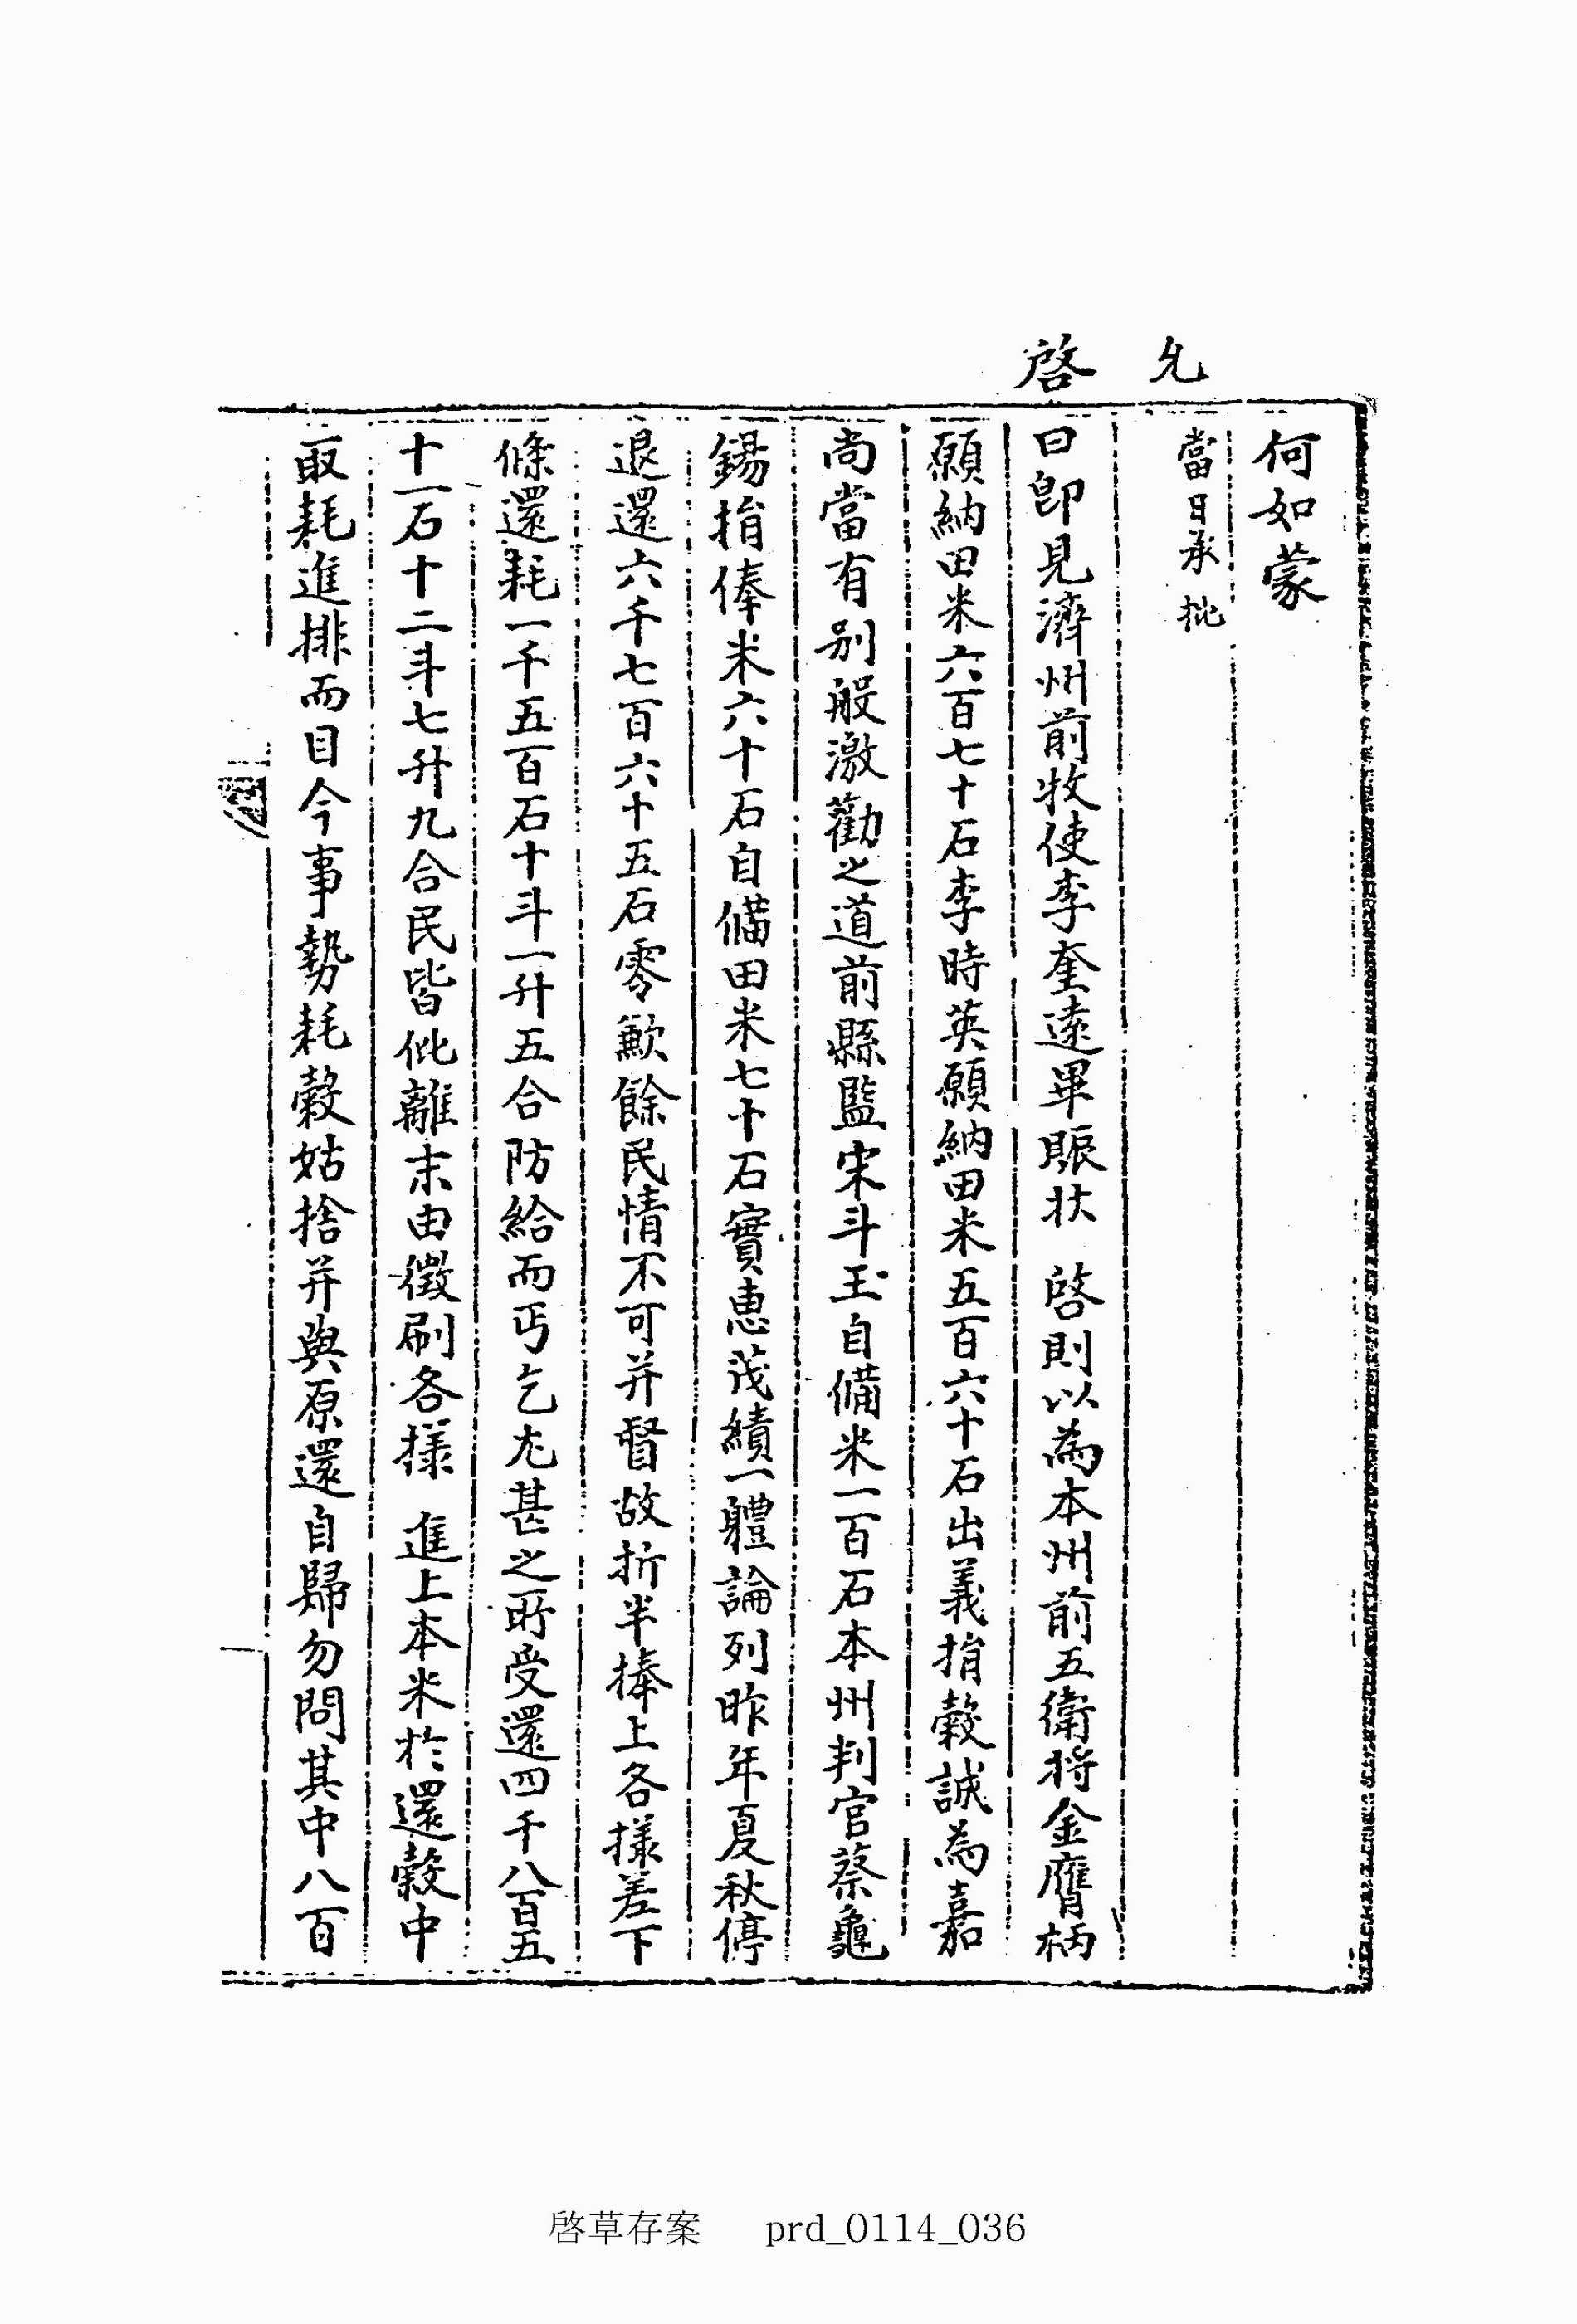 何如蒙
允
當日承批
啓
曰卽見濟州前牧使李奎遠畢賑狀 啓則以爲本州前五衛將金膺柄
願納田米六百七十石李時英願納田米五百六十石出義捐穀誠爲嘉
尚當有別般激勸之道前縣監宋斗玉自備米一百石本州判官蔡龜
錫捐俸米六十石自備田米七十石實惠茂績一軆論列昨年夏秋停
退還六千七百六十五石零歉餘民情不可幷督故折半捧上各樣差下
條還耗一千五百石十斗一升五合防給而丐乞尤甚之所受還四千八百五
十一石十二斗七升九合民皆仳離末由徵刷各樣 進上本米於還穀中
取耗進排而目今事勢耗穀姑捨幷與原還自歸勿問其中八百
啓草存案 prd_0114_036